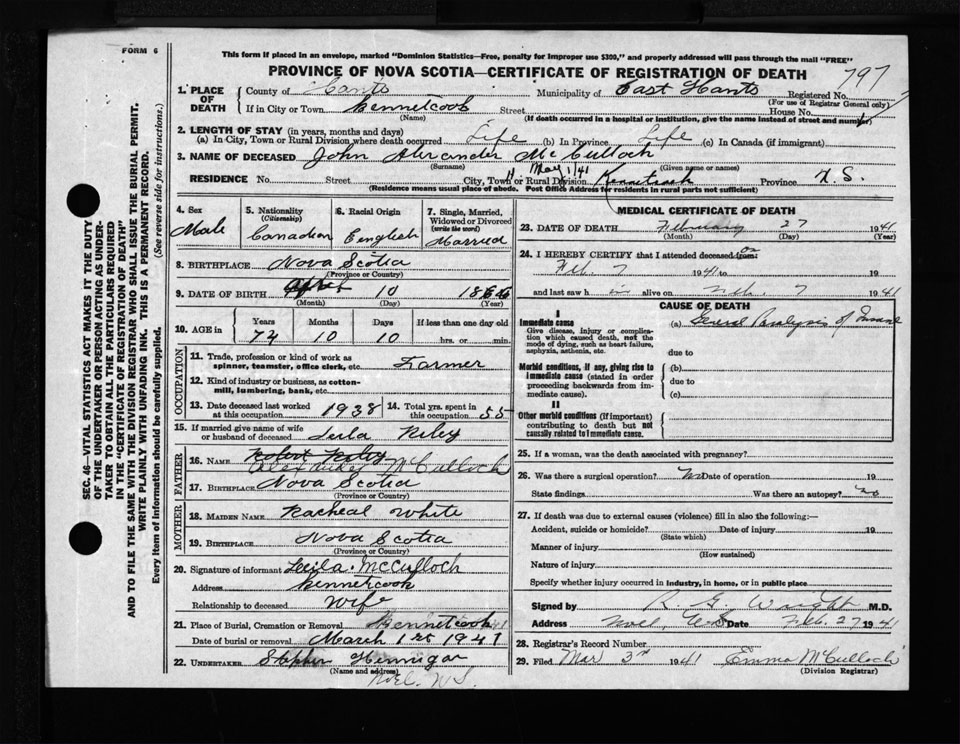 FORM 6
This form if placed in an envelope, marked "Dominion Statistics—Free, penalty for improper use $300," and properly addressed will pass through the mail "FREE"
PROVINCE OF NOVA SCOTIA—CERTIFICATE OF REGISTRATION OF DEATH
797
SEC. 46—VITAL STATISTICS ACT MAKES IT THE DUTY
OF THE UNDERTAKER OR PERSON ACTING AS UNDER-
TAKER TO OBTAIN ALL THE PARTICULARS REQUIRED
IN THE "CERTIFICATE OF REGISTRATION OF DEATH"
AND TO FILE THE SAME WITH THE DIVISION REGISTRAR WHO SHALL ISSUE THE BURIAL PERMIT.
WRITE PLAINLY WITH UNFADING INK. THIS IS A PERMANENT RECORD.
Every item of information should be carefully supplied. (See reverse side for instructions.)
1. PLACE OF DEATH County of Hants Municipality of East Hants Registered No.
(For use of Registrar General only)
If in City or Town Kennetcook Street House No.
(Name) (If death occurred in a hospital or institution, give the name instead of street and number)
2. LENGTH OF STAY (in years, months and days)
(a) In City, Town or Rural Division where death occurred Life (b) In Province Life (c) In Canada (if immigrant)
3. NAME OF DECEASED John Alexander McCulloch
(Surname) (Given name or names)
May 1/41
RESIDENCE No. Street City, Town or Rural Division Kennetcook Province N.S.
(Residence means usual place of abode. Post Office Address for residents in rural parts not sufficient)
4. Sex Male
5. Nationality (Citizenship) Canadian
6. Racial Origin English
7. Single, Married, Widowed or Divorced (write the word) Married
8. BIRTHPLACE Nova Scotia
(Province or Country)
9. DATE OF BIRTH 10 1866
(Month) (Day) (Year)
10. AGE in Years Months Days If less than one day old
74 10 10 hrs. or min.
OCCUPATION
11. Trade, profession or kind of work as spinner, teamster, office clerk, etc. Farmer
12. Kind of industry or business, as cotton-mill, lumbering, bank, etc.
13. Date deceased last worked at this occupation 1938 14. Total yrs. spent in this occupation 55
15. If married give name of wife or husband of deceased Leila Riley
FATHER
16. NAME Robert Riley
Alexander McCulloch
17. BIRTHPLACE Nova Scotia
(Province or Country)
MOTHER
18. MAIDEN NAME Racheal White
19. BIRTHPLACE Nova Scotia
(Province or Country)
20. Signature of informant Leila McCulloch
Address Kennetcook
Relationship to deceased Wife
21. Place of Burial, Cremation or Removal Kennetcook
Date of burial or removal March 1st 1941
22. UNDERTAKER Stephen Hennigar
(Name and address)
Noel N.S.
MEDICAL CERTIFICATE OF DEATH
23. DATE OF DEATH February 27 1941
(Month) (Day) (Year)
24. I HEREBY CERTIFY that I attended deceased from: on
Feb. 7 1941 to 19
and last saw h im alive on Feb. 7 1941
CAUSE OF DEATH
I
Immediate cause
Give disease, injury or complication which caused death, not the mode of dying, such as heart failure, asphyxia, asthenia, etc.
(a) General Paralysis of Insane
due to
Morbid conditions, if any, giving rise to immediate cause (stated in order proceeding backwards from immediate cause).
(b)
due to
(c)
II
Other morbid conditions (if important) contributing to death but not causally related to immediate cause.
25. If a woman, was the death associated with pregnancy?
26. Was there a surgical operation? No Date of operation 19
State findings Was there an autopsy? no
27. If death was due to external causes (violence) fill in also the following:—
Accident, suicide or homicide? Date of injury 19
(State which)
Manner of injury
(How sustained)
Nature of injury
Specify whether injury occurred in industry, in home, or in public place
Signed by R G. Wright M.D.
Address Noel, N.S Date Feb. 27 1941
28. Registrar's Record Number
29. Filed Mar 3rd 1941 Emma McCulloch
(Division Registrar)